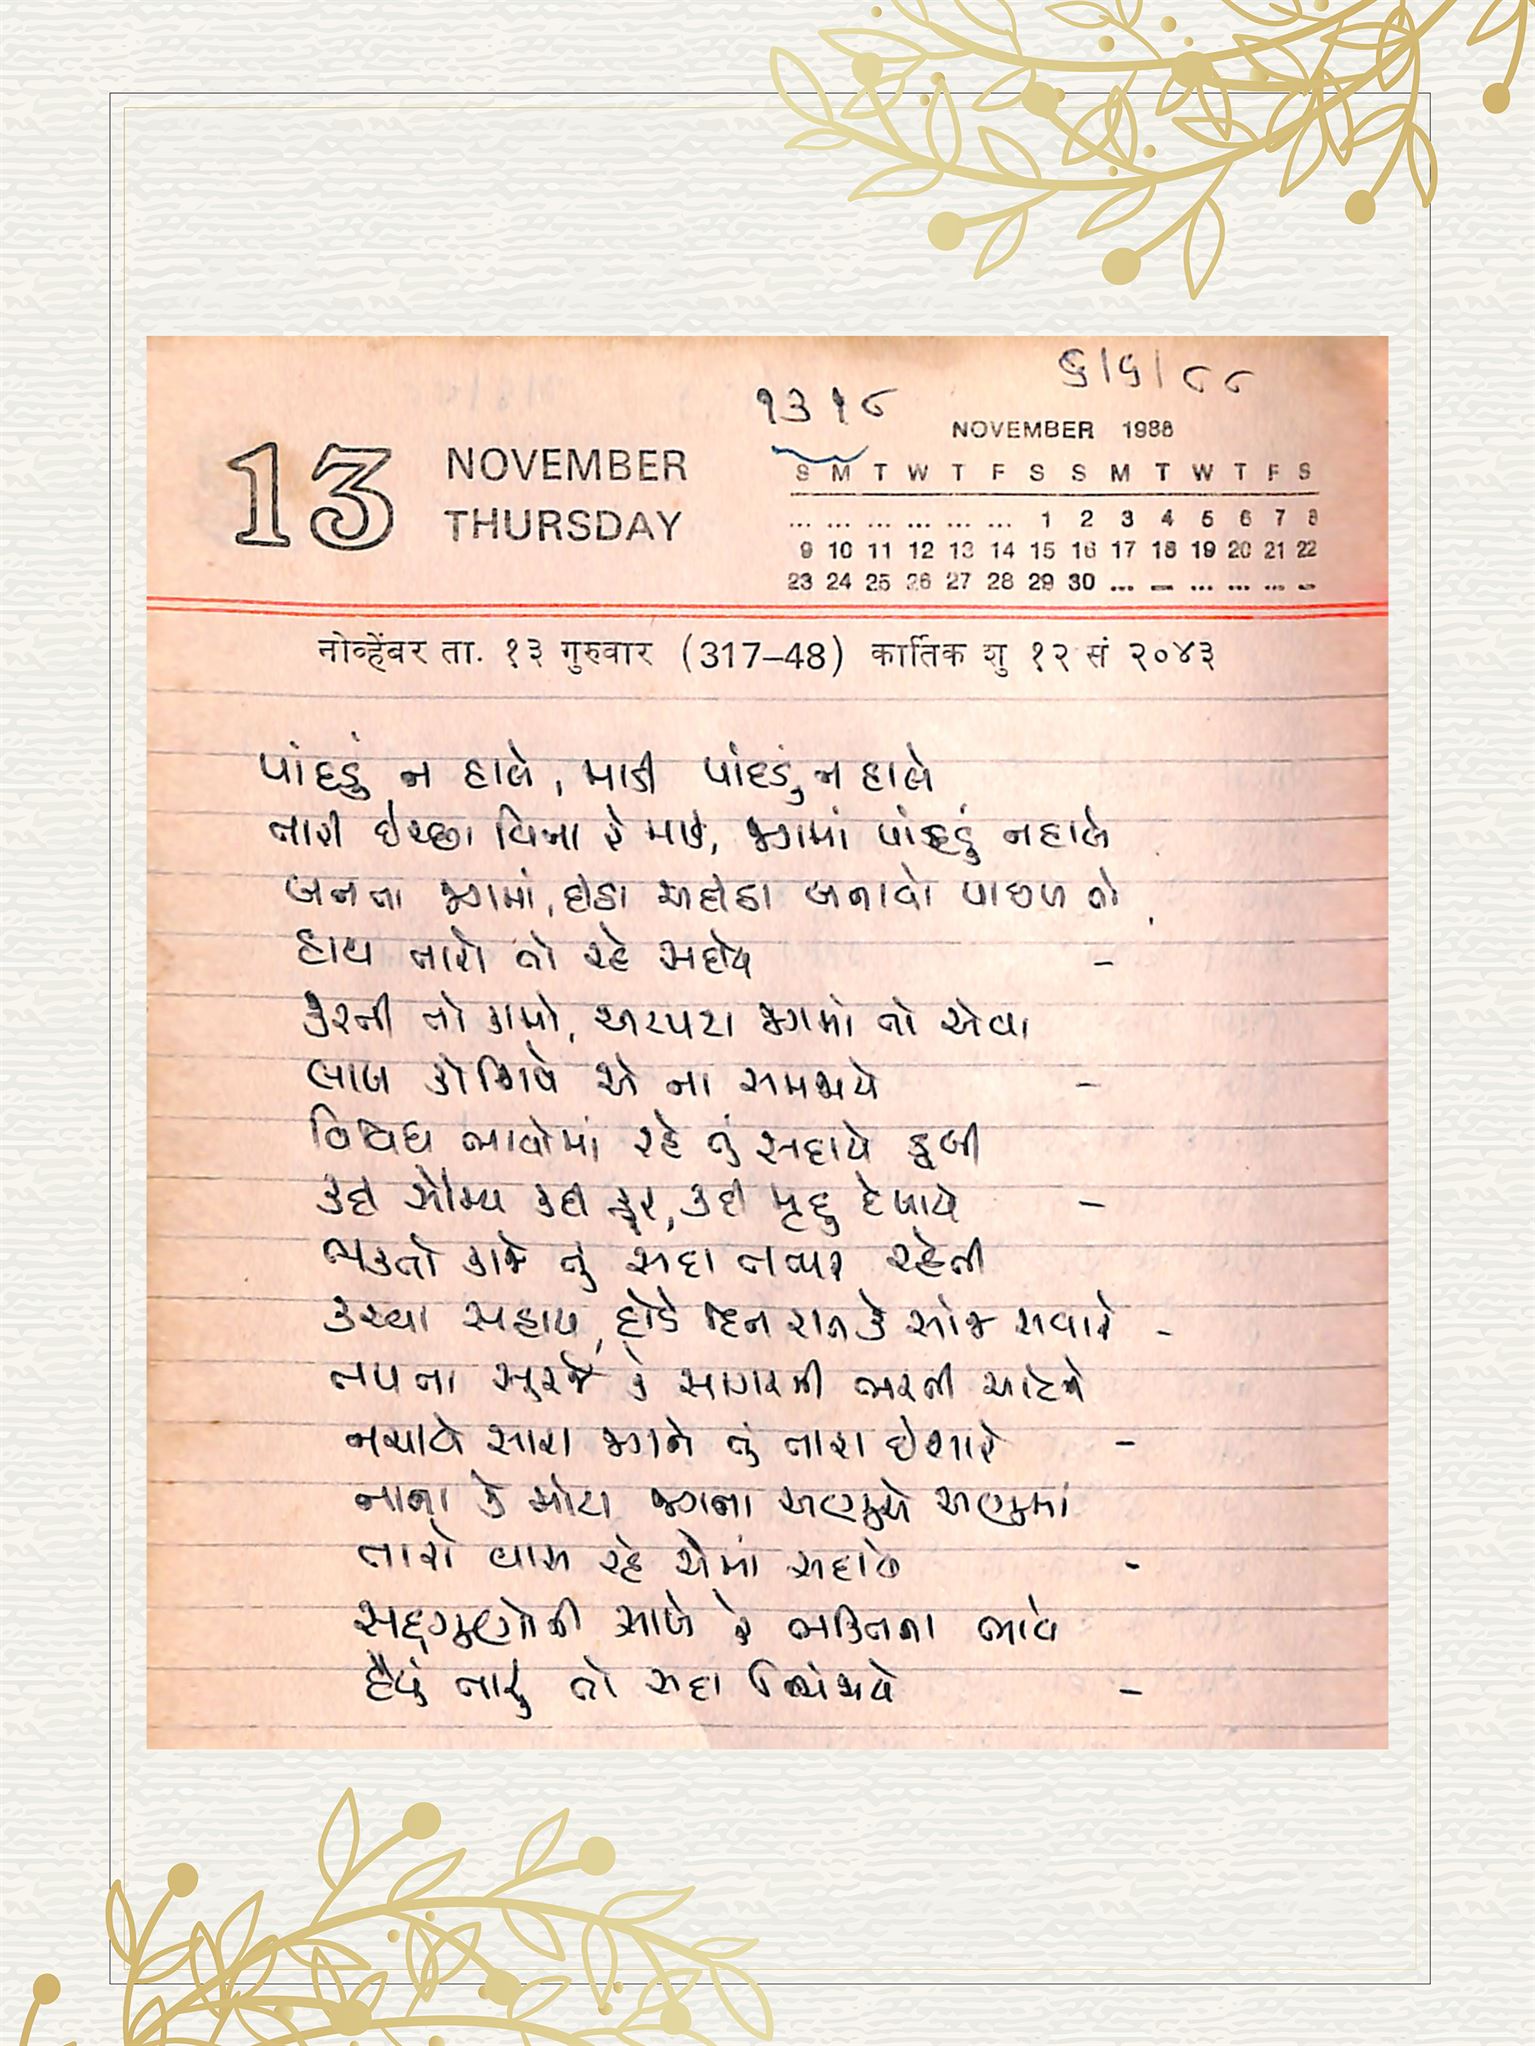 ૬/૬/૮૮
૧૩૧૮
13 NOVEMBER THURSDAY
NOVEMBER 1986
S M T W T F S S M T W T F S
... ... ... ... ... ... 1 2 3 4 5 6 7 8
9 10 11 12 13 14 15 16 17 18 19 20 21 22
23 24 25 26 27 28 29 30 ... ... ... ... ... ...
नोव्हेंबर ता. १३ गुरुवार (317–48) कार्तिक शु १२ सं २०४३
પાંદડું ન હાલે, માડી પાંદડું ન હાલે
તારી ઇચ્છા વિના રે માઇ, જગમાં પાંદડું ન હાલે
બનતા જગમાં, હોઠા બનાવો પાછળ તો
હાથ તારો તો રહે સદાય -
કરની તો કામો, અટપટા જગમાં તો એવા
લાખ કોશિષે એ ના સમજાયે -
વિવિધ ભાવોમાં રહે તું સદાયે ડૂબી
કદી સૌમ્ય કદી ક્રૂર, કદી મૃદુ દેખાયે -
ભક્તો કાજે તું સદા તત્પર રહેતી
કરવા સહાય, દોડે દિન રાત કે સાંજ સવારે -
તપતા સૂરજે કે સાગરની ભરતી ઓટને
નચાવે સારા જગને તું તારા ઇશારે -
નાના કે મોટા જગના અણુએ અણુમાં
તારો વાસ રહે એમાં સદાયે -
સદ્દગુણોની સાથે રે ભક્તિના ભાવે
હૈયું તારું તો સદા ભિંજાયે -